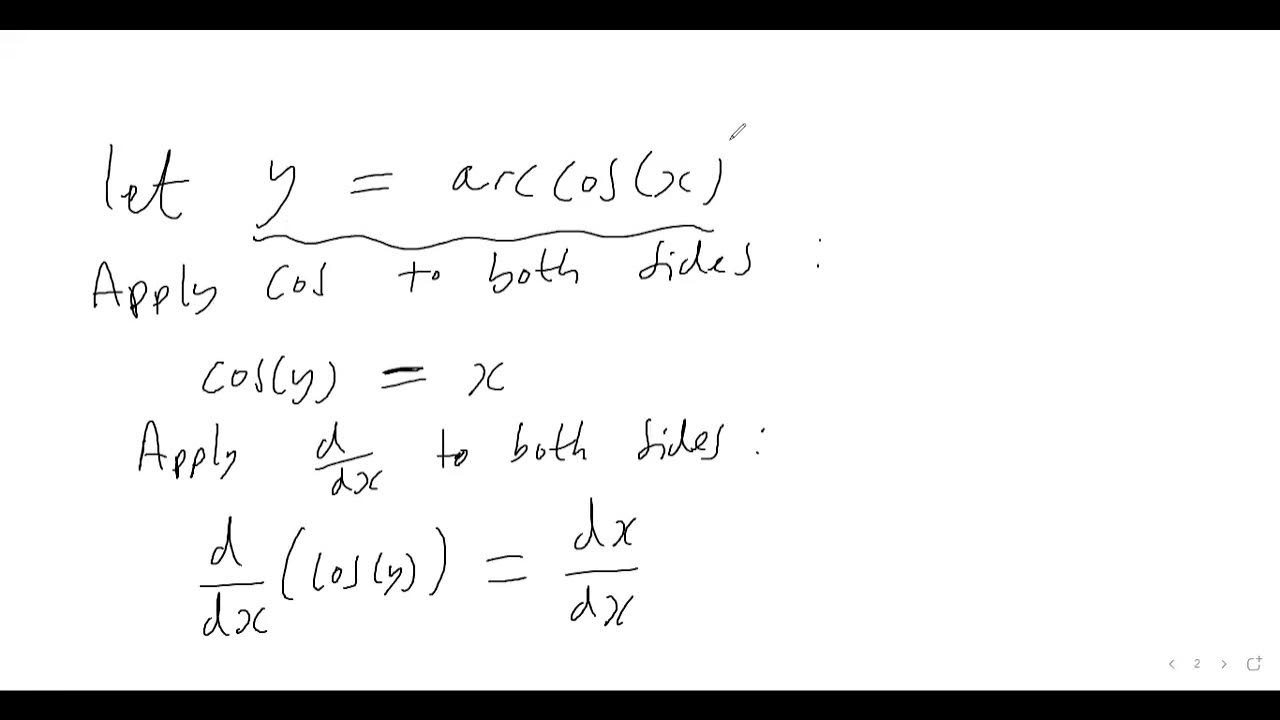 let y = arccos(x)
Apply cos to both sides :
cos(y) = x
Apply d/dx to both sides :
d/dx (cos(y)) = dx/dx
2